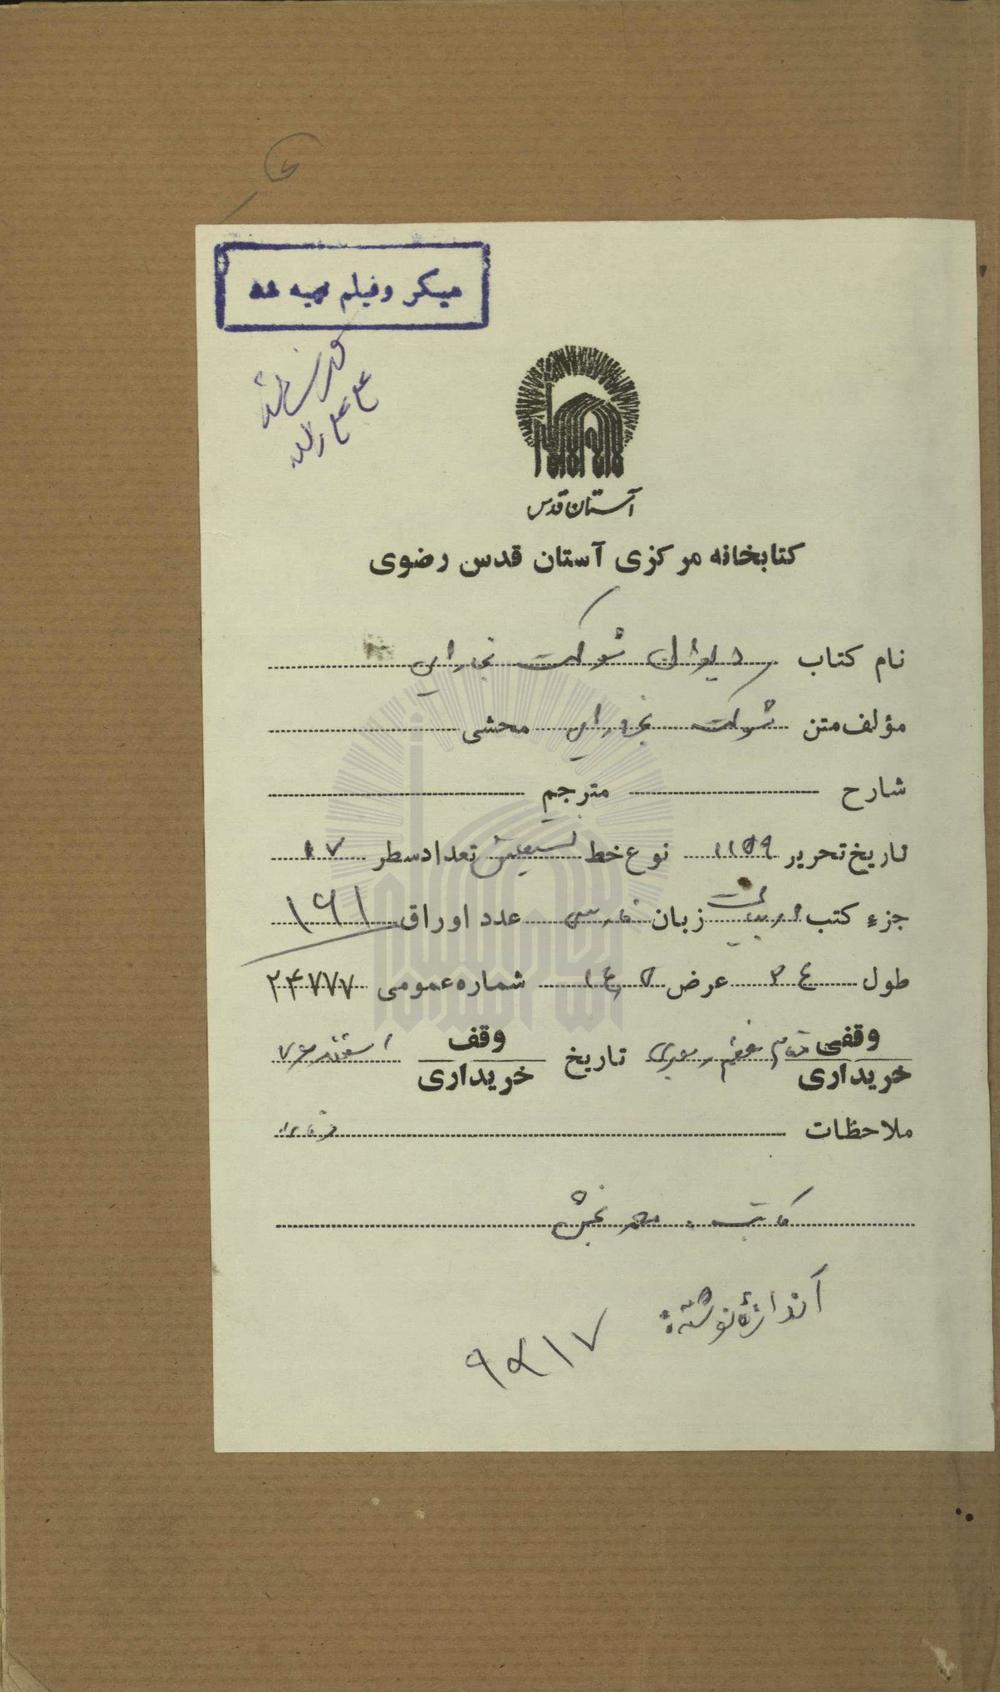 میکروفیلم تهیه شد
آستان قدس
کتابخانه مرکزی آستان قدس رضوی
نام کتاب دیوان شوکت بخارایی
مؤلف متن شوکت بخارایی محشی
شارح مترجم
تاریخ تحریر ۱۱۵۹ نوع خط نستعلیق تعداد سطر ۱۷
جزء کتب ادبیات زبان فارسی عدد اوراق ۱۶۱
طول ۲۴ عرض ۱۴٫۵ شماره عمومی ۲۴۷۷۷
وقفی مقام معظم رهبری تاریخ وقف اسفند ۷۴
خریداری خریداری
ملاحظات
کاتب: محمد بخش
اندازه نوشته: ۱۷×۹